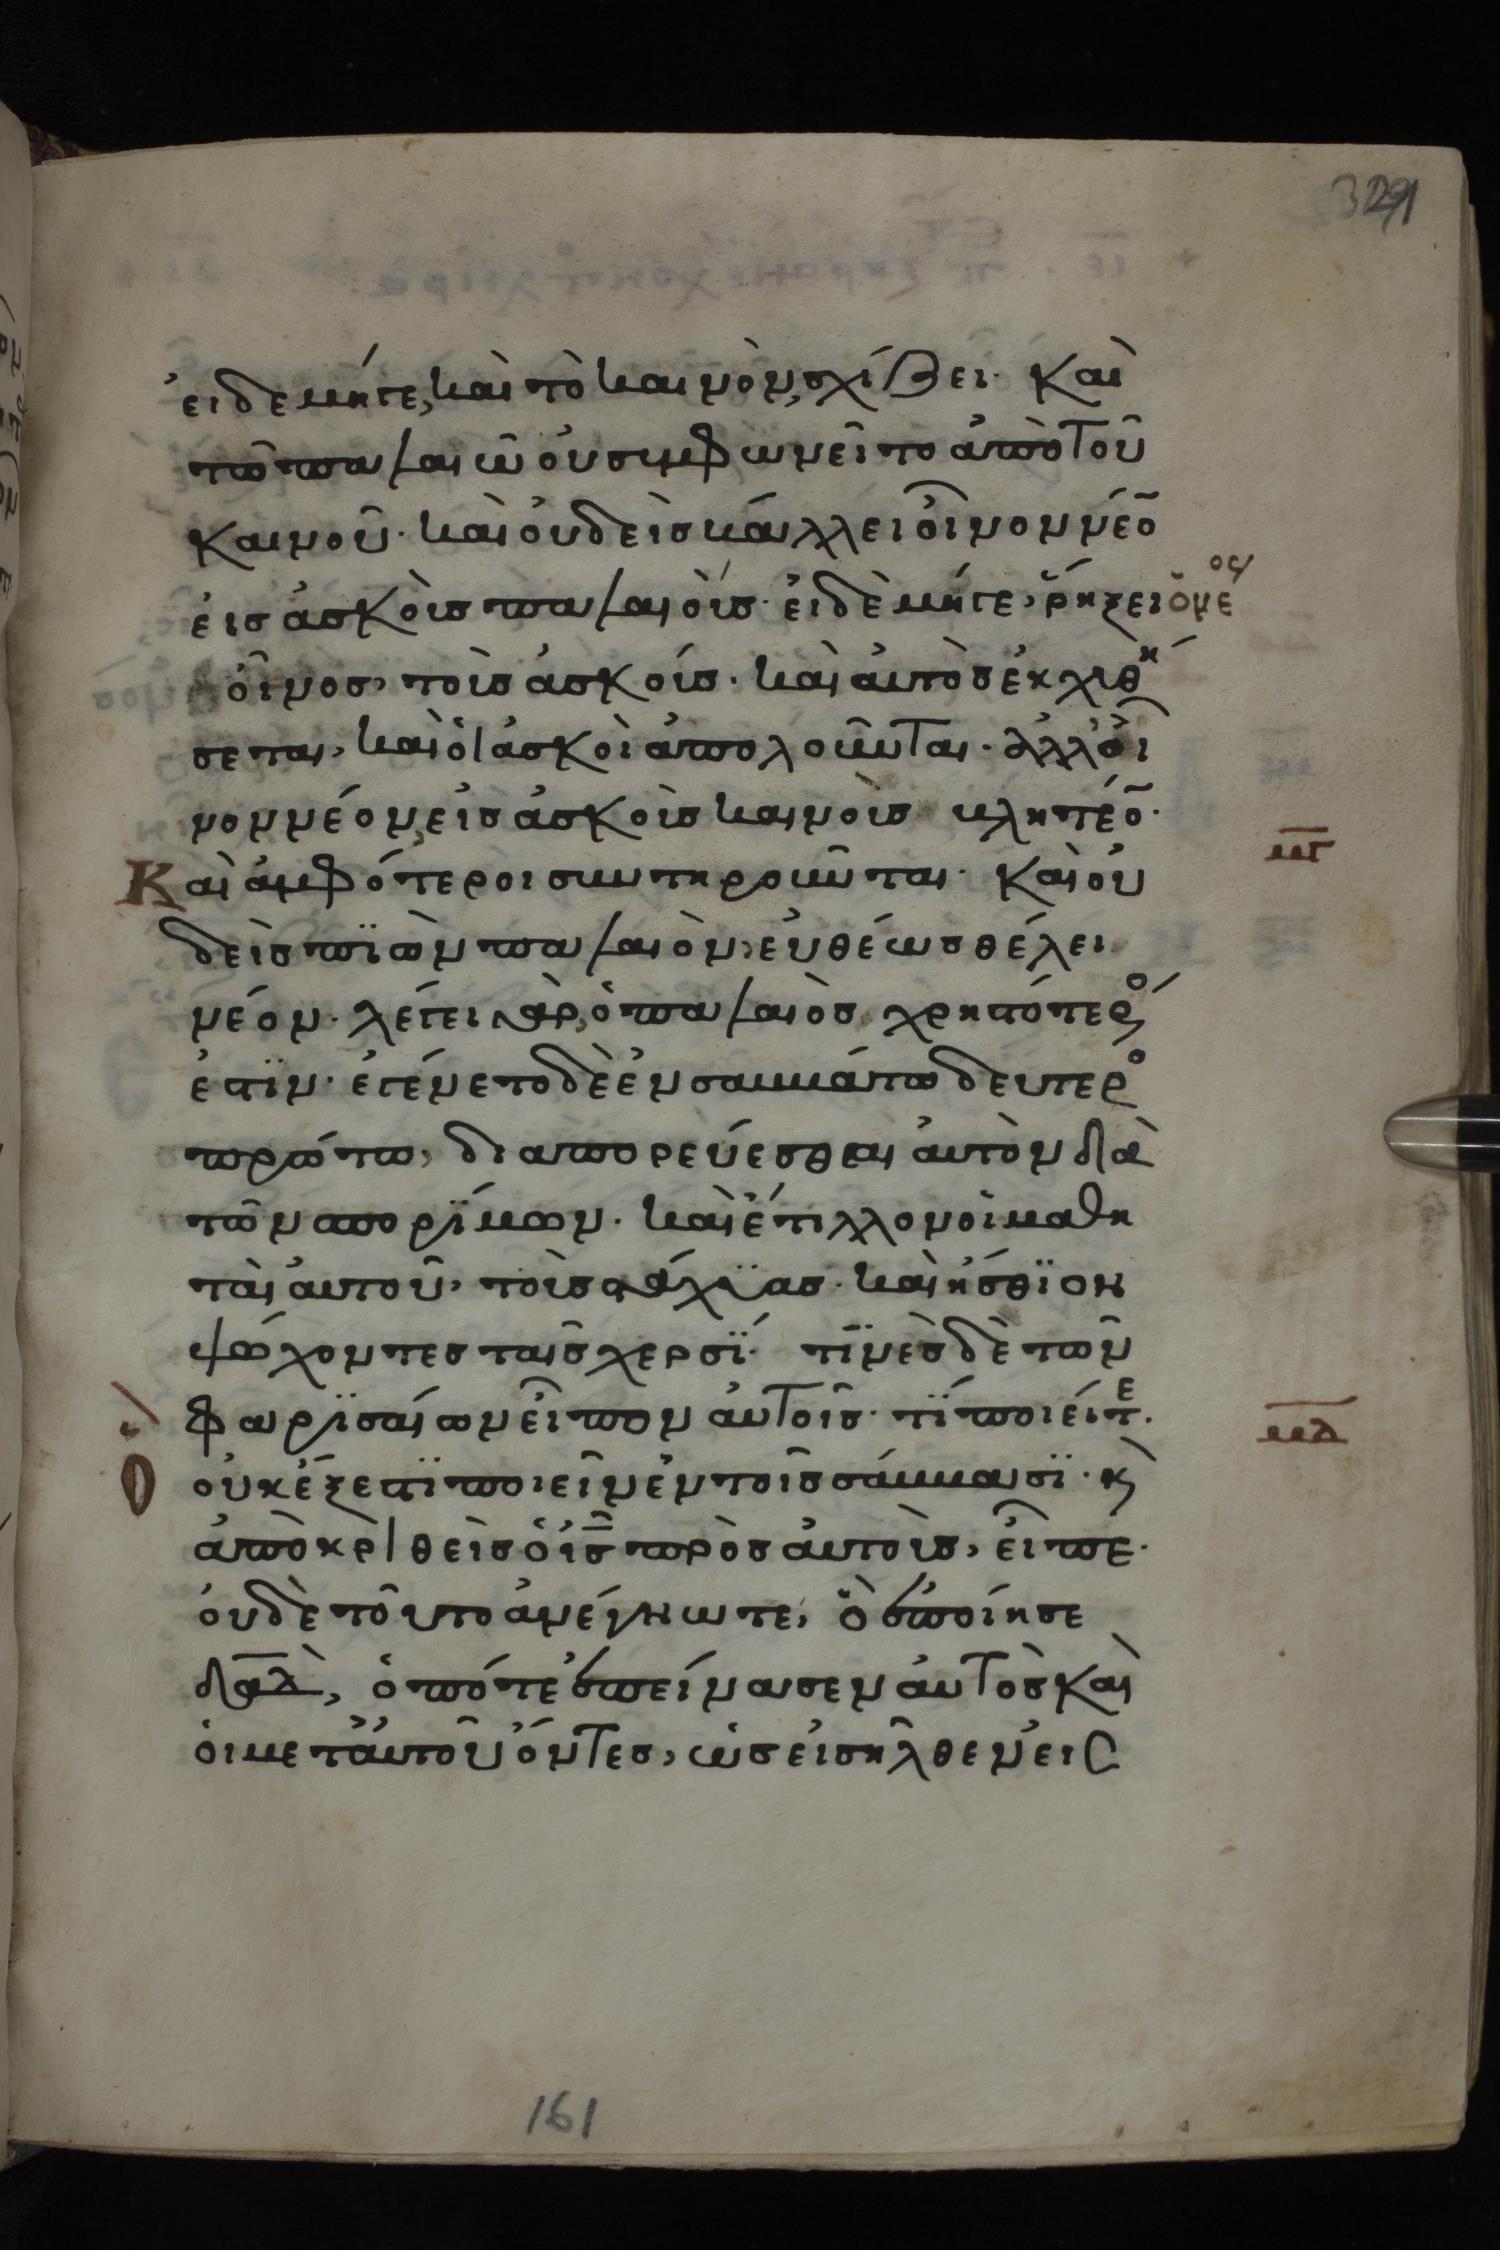 321
εἰδεμήγε, καὶ τὸ καινὸν, σχίζει· Καὶ
τῶ παλαιῶ οὐ συμφωνεῖ το ἀπὸ τοῦ
καινοῦ· καὶ οὐδεὶς βάλλει οἶνον νέο̄
εἰς ἀσκοὺς παλαιοὺς· εἰδὲ μήγε, ῥήξει ὁ νέος
οἶνος, τοὺς ἀσκούς· καὶ αὐτὸς ἐκχυθή
σεται, καὶ ὁι ἀσκοὶ ἀπολοῦνται· ἀλλ' οἶ
νον νέον εἰς ἀσκοὺς καινοὺς βλητέο̄·
Καὶ ἀμφότεροι συντηροῦνται· Καὶ οὐ
μγ
δεὶς πϊὼν παλαιὸν, εὐθέως θέλει
νέον· λέγει γὰρ, ὁ παλαιὸς χρηστότερός
ἐστϊν· ἐγένετο δὲ ἐν σαββάτω δευτερο
πρώτω, διαπορεύεσθαι αὐτὸν διὰ
τῶν σπορΐμων· καὶ ἔτιλλον οἱ μαθη
ταὶ αὐτοῦ, τοὺς στάχϋας· καὶ ἤσθϊον
ψώχοντες ταῖς χερσΐ· τϊνὲς δὲ τῶν
φαρϊσαίων εἶπον αὐτοῖς· τΐ ποιεῖτε·
μδ
ὁ οὐκ ἔξεστϊ ποιεῖν ἐν τοῖς σάββασϊ· κ̀
ἀποκριθεὶς ὁ ἰ̄ς̄ πρὸς αὐτοὺς, εἶπε·
οὐδὲ τοῦτο ἀνέγνωτε, ὃ ἐποίησε
δα̅δ, ὁπότε ἐπείνασεν αὐτὸς καὶ
ὁι μετ' αὐτοῦ ὄντες, ὡς εἰσῆλθεν εἰς
161